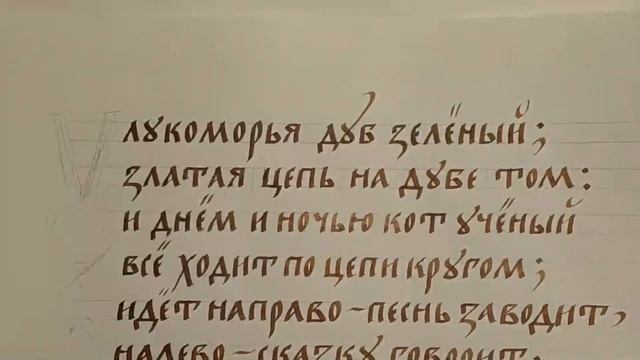 У лукоморья дуб зелёный;
златая цепь на дубе том:
и днём и ночью кот учёный
всё ходит по цепи кругом;
идёт направо - песнь заводит,
налево - сказку говорит.